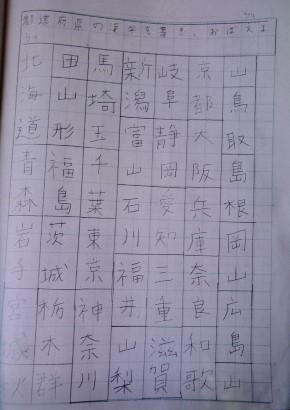 都道府県の漢字を書き、おぼえよ
う。
北海道青森岩手宮城秋
田山形福島茨城栃木群
馬埼玉千葉東京神奈川
新潟富山石川福井山梨
岐阜静岡愛知三重滋賀
京都大阪兵庫奈良和歌
山鳥取島根岡山広島山